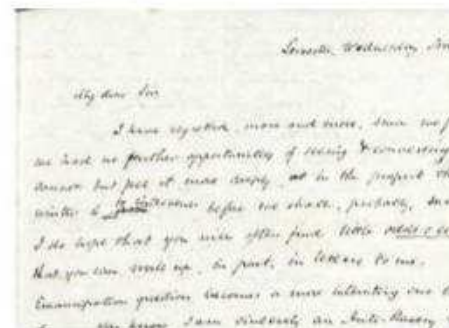 Leicester, Wednesday
My dear Sir
I have regretted, more and more, since we
we had no further opportunities of seeing & conversing
cannot but feel it more deeply, as in the prospect
winter to intervenes before we shall, probably,
I do hope that you will often find little odds & 
that you can work up, in part, in letters to me.
Emancipation question becomes a more interesting one
know I am sincerely an Anti-Slavery